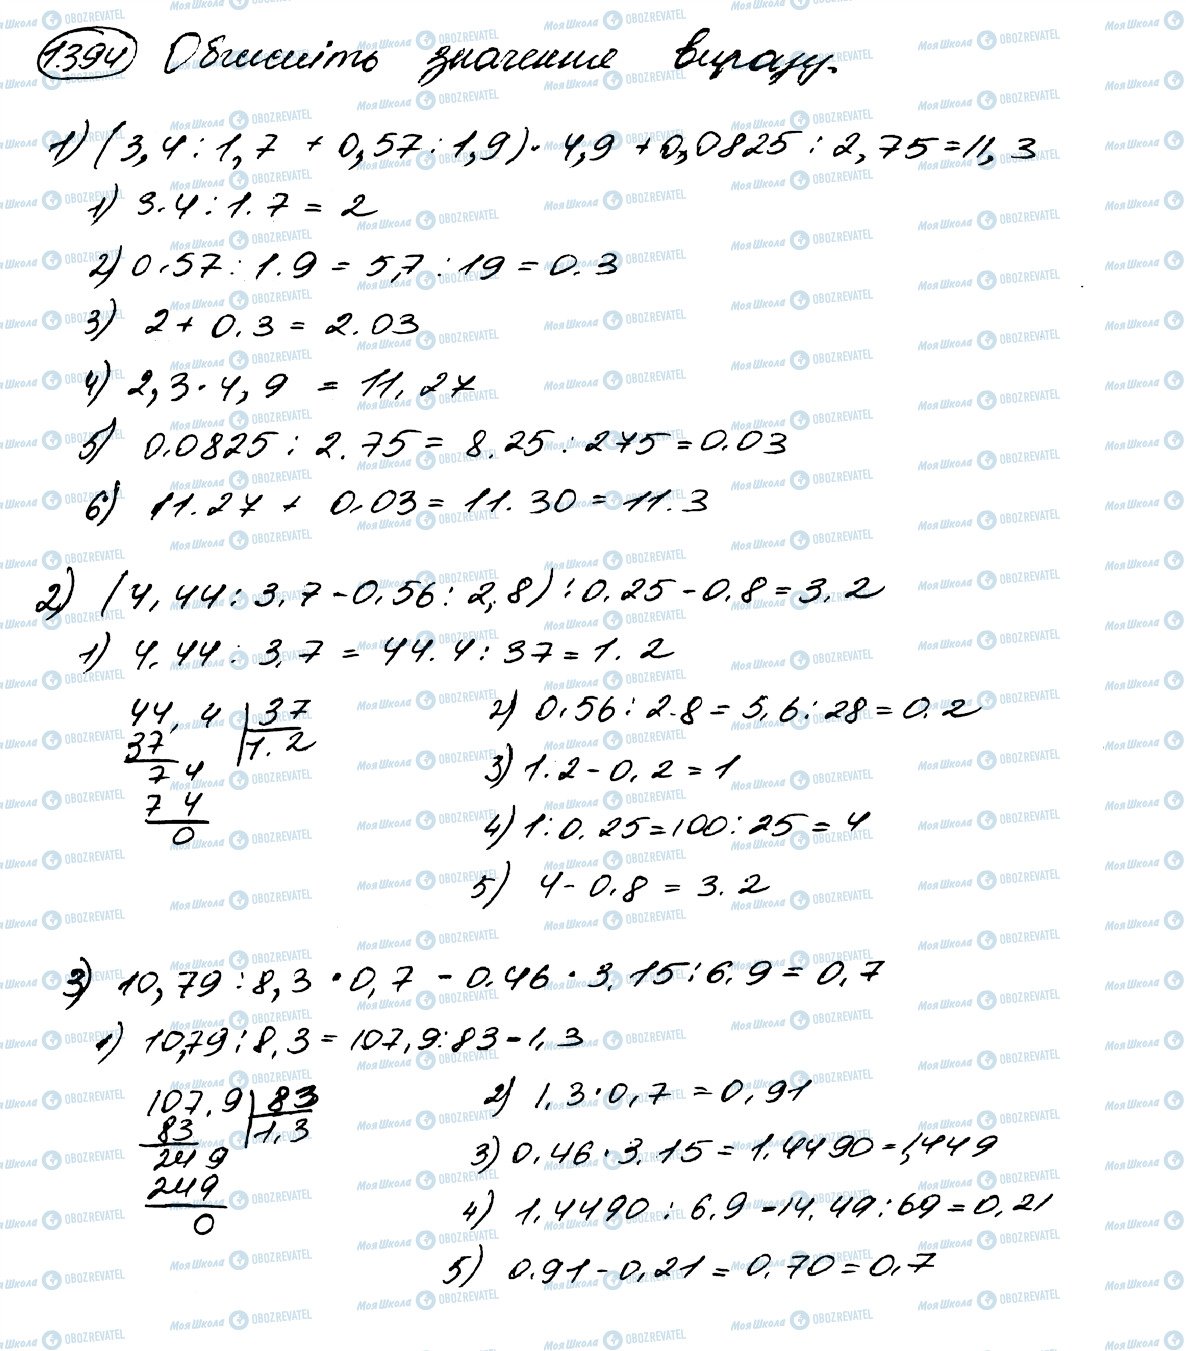 1.394 Обчисліть значення виразу.
1) (3,4 : 1,7 + 0,57 : 1,9) · 4,9 + 0,0825 : 2,75 = 11,3
1) 3.4 : 1.7 = 2
2) 0.57 : 1.9 = 5,7 : 19 = 0.3
3) 2 + 0.3 = 2.03
4) 2,3 · 4,9 = 11.27
5) 0.0825 : 2.75 = 8.25 : 275 = 0.03
6) 11.27 + 0.03 = 11.30 = 11.3
2) (4,44 : 3.7 - 0.56 : 2,8) : 0.25 - 0.8 = 3.2
1) 4.44 : 3,7 = 44.4 : 37 = 1.2
44,4 37
37 1.2
7 4
7 4
0
2) 0.56 : 2.8 = 5,6 : 28 = 0.2
3) 1.2 - 0,2 = 1
4) 1 : 0.25 = 100 : 25 = 4
5) 4 - 0.8 = 3.2
3) 10,79 : 8,3 · 0,7 - 0.46 · 3.15 : 6.9 = 0,7
1) 10,79 : 8,3 = 107,9 : 83 = 1,3
107,9 83
83 1,3
24 9
249
0
2) 1,3 · 0,7 = 0,91
3) 0.46 · 3.15 = 1.4490 = 1,449
4) 1.4490 : 6.9 = 14.49 : 69 = 0,21
5) 0.91 - 0,21 = 0.70 = 0.7
МояШкола OBOZREVATEL